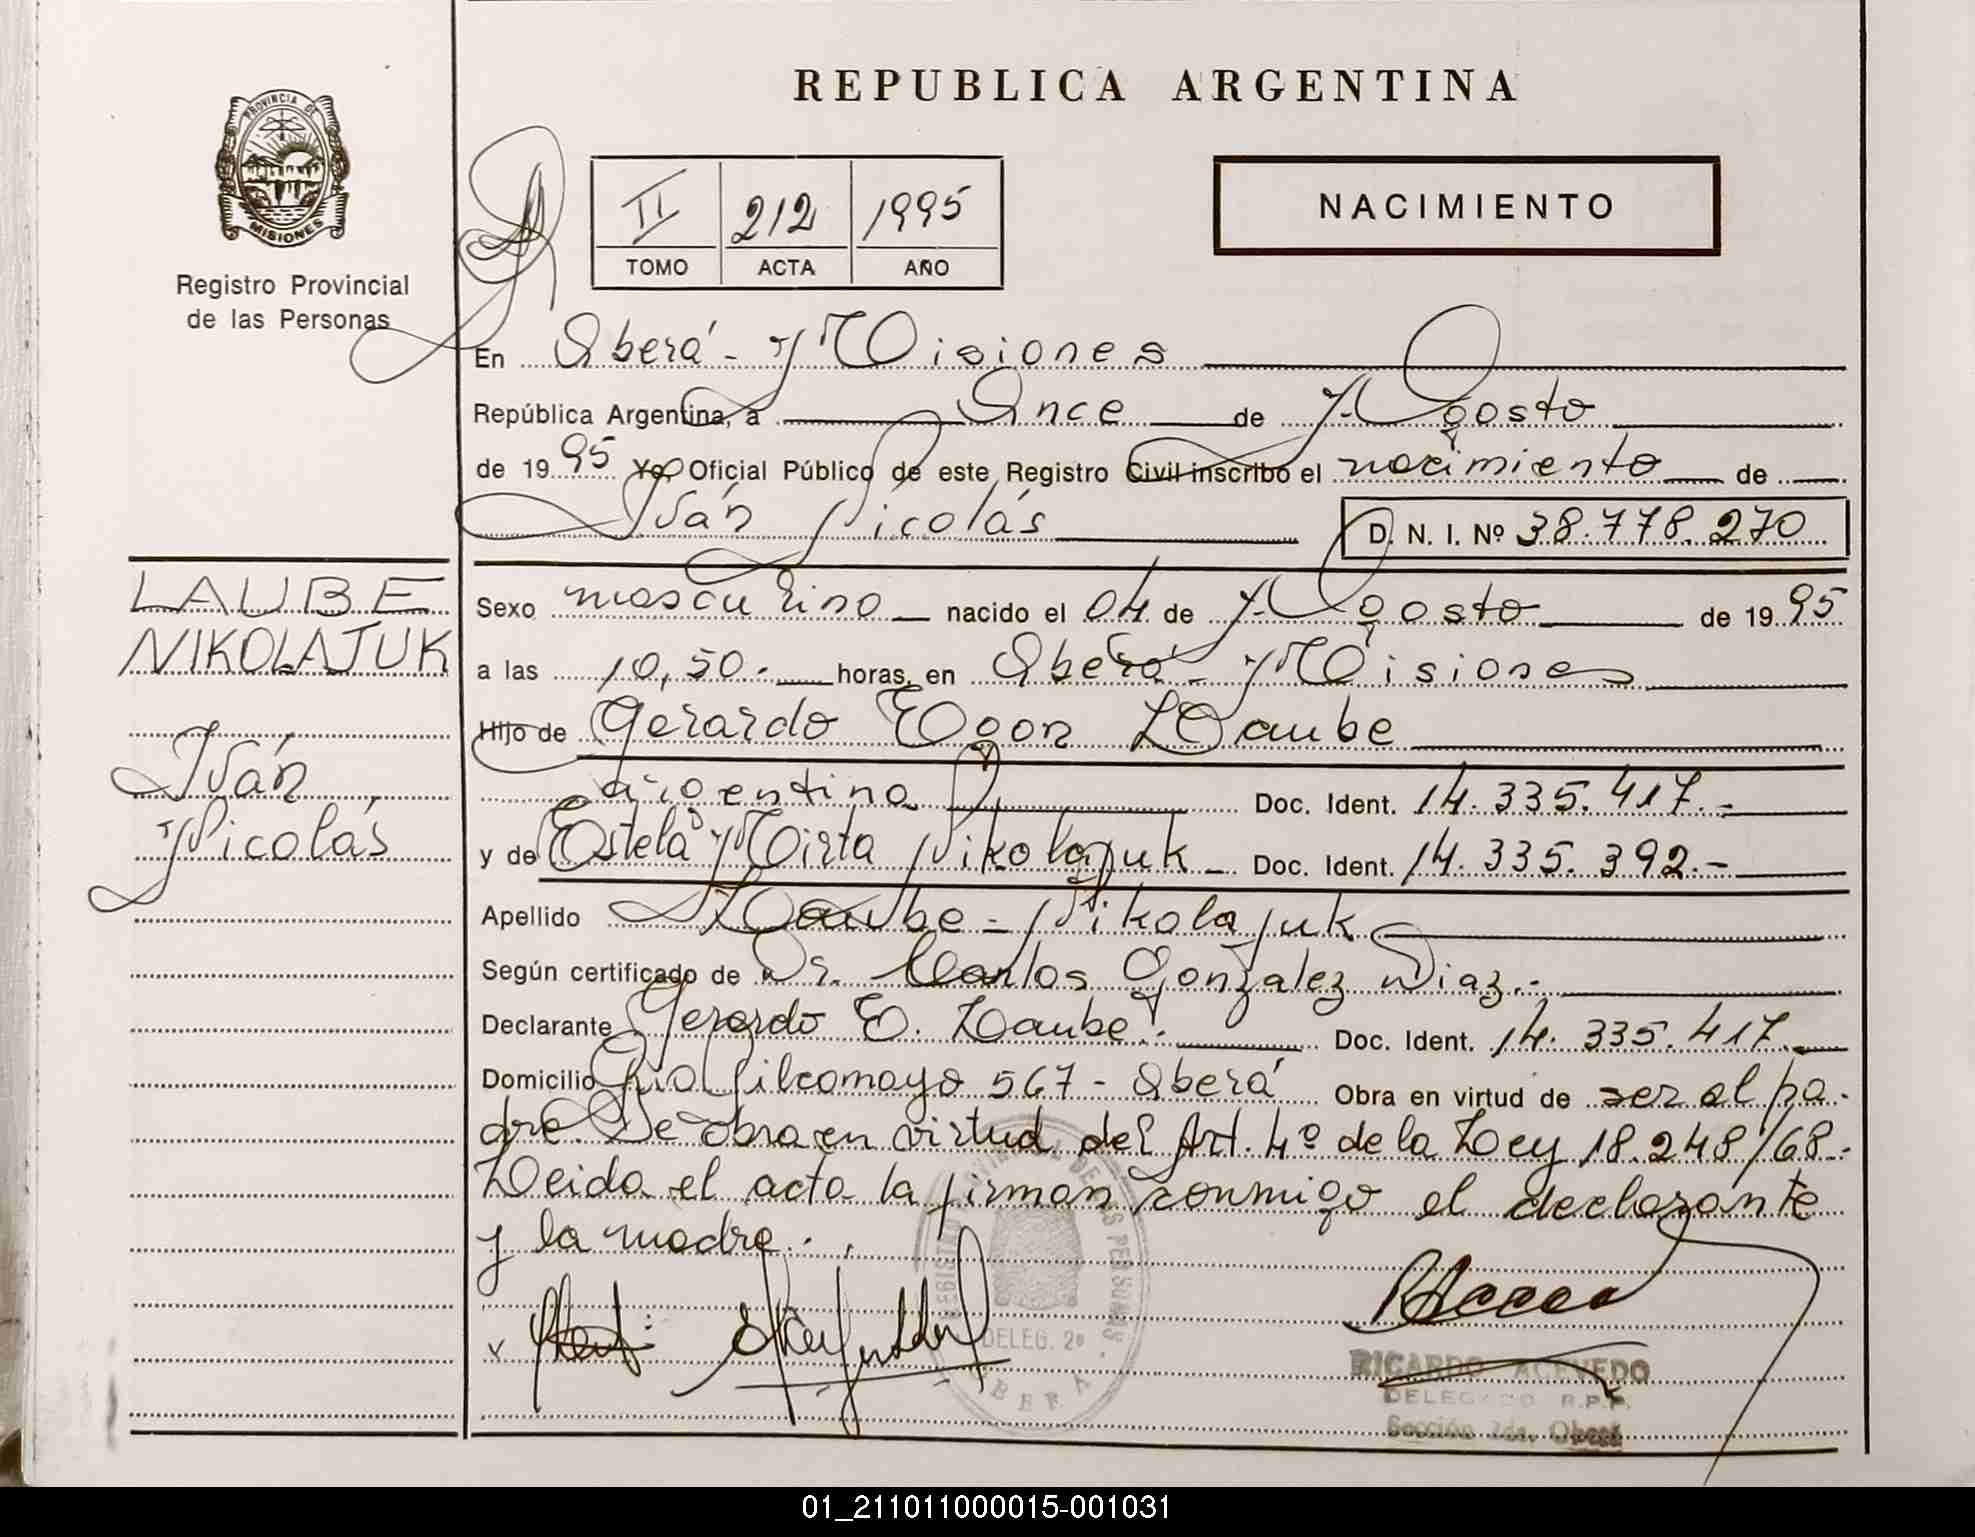 REPUBLICA ARGENTINA
PROVINCIA DE
MISIONES
Registro Provincial
de las Personas
II 212 1995
TOMO ACTA AÑO
NACIMIENTO
En Oberá - Misiones
República Argentina, a Once de Agosto
de 1995 Yo, Oficial Público de este Registro Civil inscribo el nacimiento de
Iván Nicolás D. N. I. Nº 38.778.270
LAUBE
NIKOLAJUK
Iván
Nicolás
Sexo masculino nacido el 04 de Agosto de 1995
a las 10,50.- horas, en Oberá - Misiones
Hijo de Gerardo Egon Laube
argentina Doc. Ident. 14.335.417.-
y de Estela Mirta Nikolajuk Doc. Ident. 14.335.392.-
Apellido Laube - Nikolajuk
Según certificado de Dr. Carlos Gonzalez Diaz.-
Declarante Gerardo E. Laube. Doc. Ident. 14.335.417.
Domicilio Rio Pilcomayo 567 - Oberá Obra en virtud de ser el pa-
dre. Se obra en virtud del Art. 4º de la Ley 18.248/68.-
Leida el acta la firman conmigo el declarante
y la madre.
DELEG. 2ª
OBERA
RICARDO ACEVEDO
DELEGADO R.P.P.
Sección 2da. Oberá
01_211011000015-001031